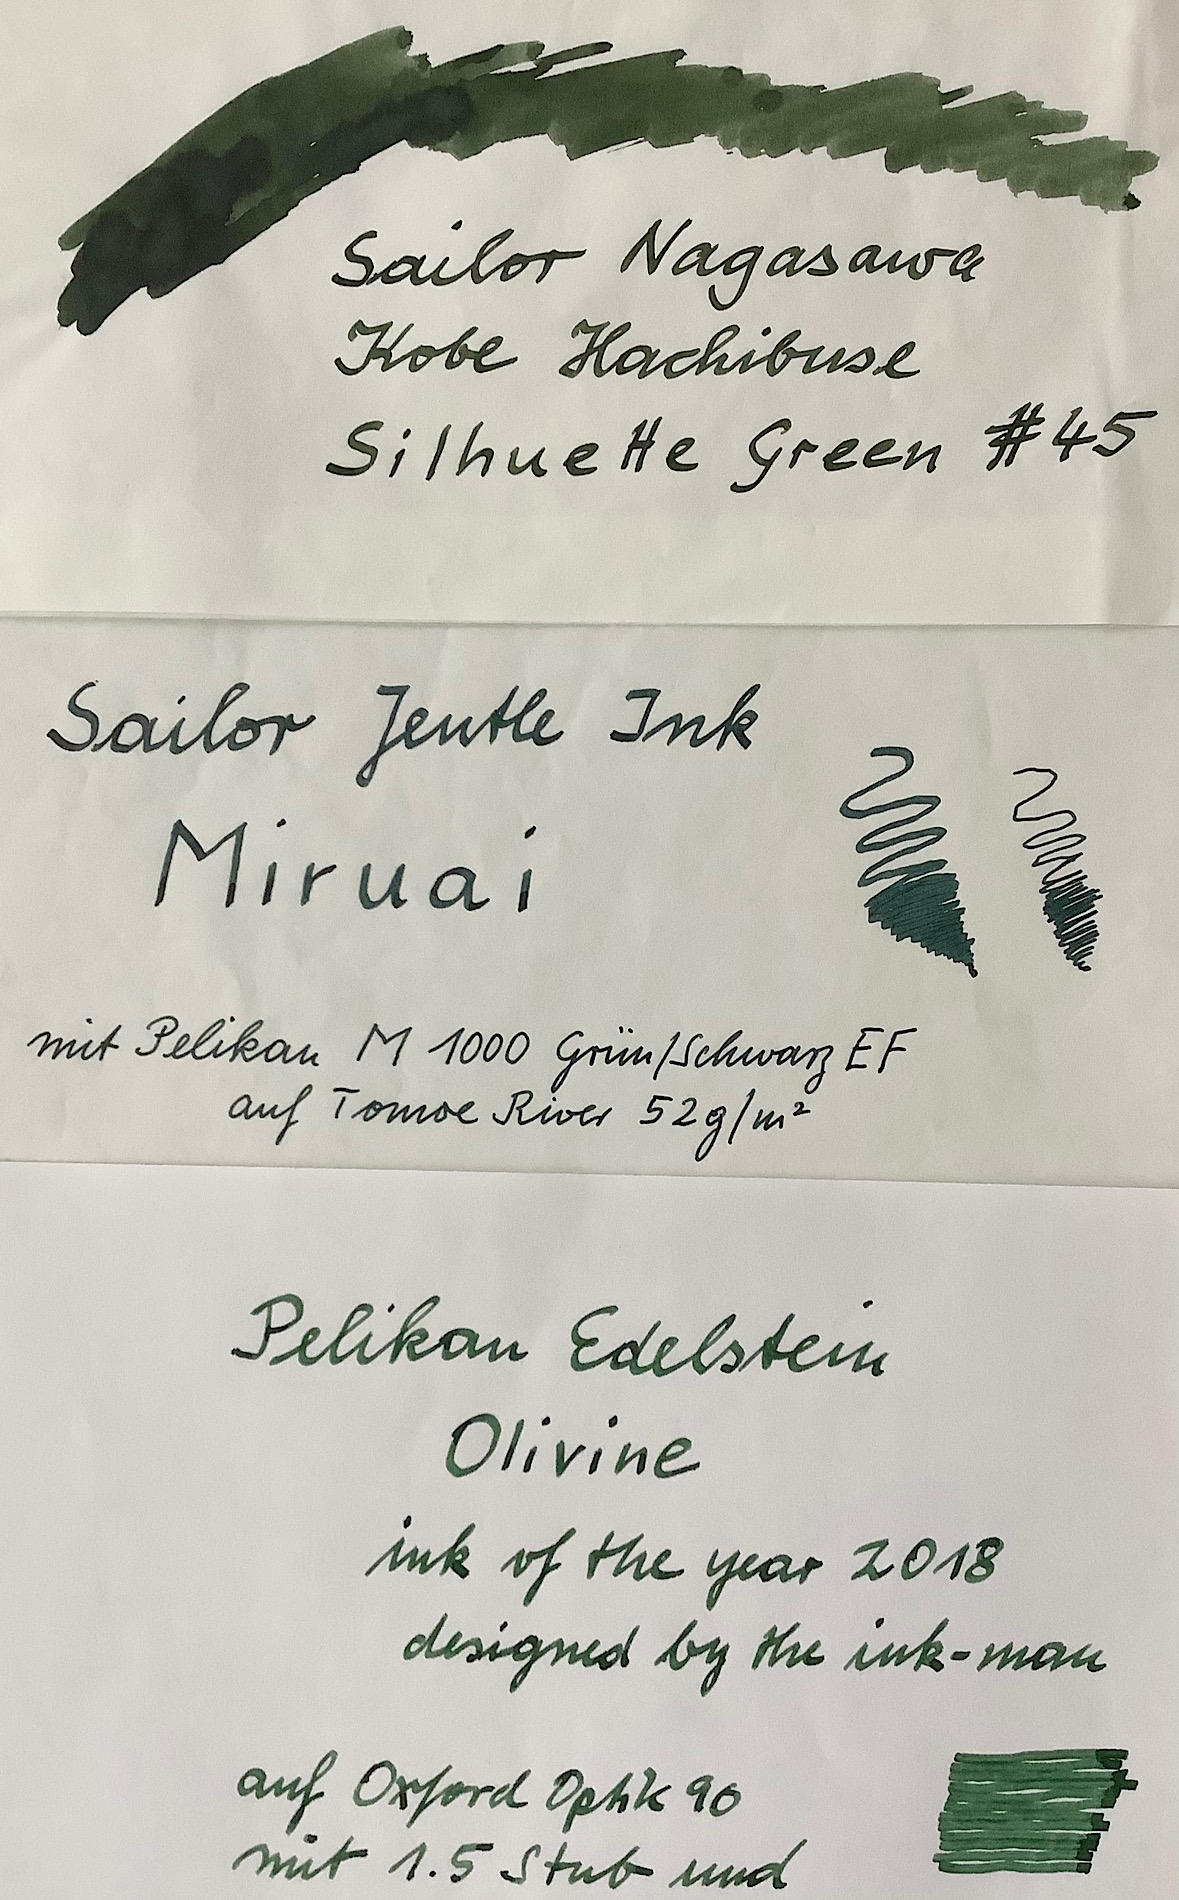 Sailor Nagasawa
Kobe Hachibuse
Silhuette Green #45
Sailor Jentle Ink
Miruai
mit Pelikan M 1000 Grün/Schwarz EF
auf Tomoe River 52g/m²
Pelikan Edelstein
Olivine
ink of the year 2018
designed by the ink-man
auf Oxford Optik 90
mit 1.5 Stub und